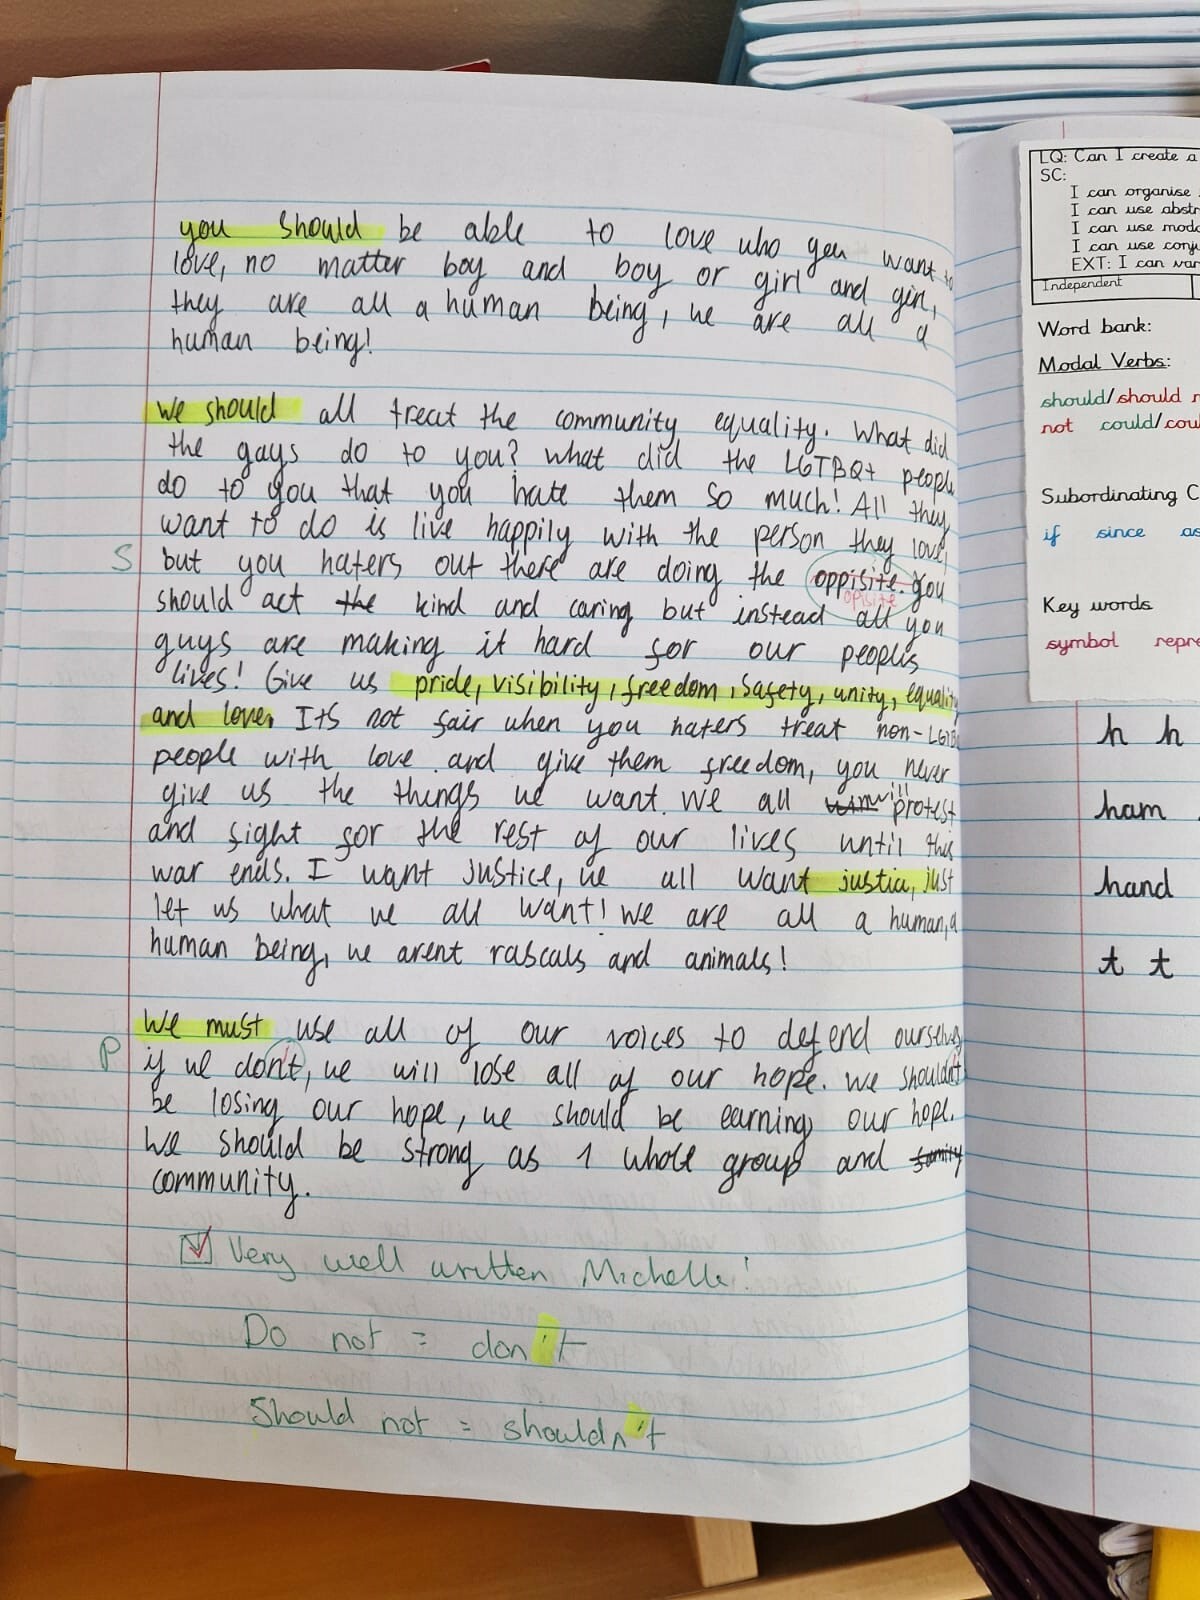 you should be able to love who you want to
love, no matter boy and boy or girl and girl,
they are all a human being, we are all a
human being!
We should all treat the community equality. What did
the gays do to you? what did the LGTBQ+ people
do to you that you hate them so much! All they
want to do is live happily with the person they love,
S but you haters out there are doing the oppisite. You
opisite
should act the kind and caring but instead all you
guys are making it hard for our people's
lives! Give us pride, visibility, freedom, safety, unity, equality
and love. It's not fair when you haters treat non-LGTB
people with love and give them freedom, you never
give us the things we want. We all will protest
and fight for the rest of our lives until this
war ends. I want justice, we all want justia, just
let us what we all want! We are all a human, a
human being, we arent rascals and animals!
We must use all of our voices to defend ourselves
P if we don't, we will lose all of our hope. We shouldn't
be losing our hope, we should be earning our hope.
We should be strong as 1 whole group and family
community.
Very well written Michelle!
Do not = don't
Should not = shouldn't
LQ: Can I create a
SC:
I can organise
I can use abstr
I can use moda
I can use conju
EXT: I can var
Independent
Word bank:
Modal Verbs:
should/should n
not could/coul
Subordinating C
if since as
Key words
symbol repre
h h
ham
hand
t t